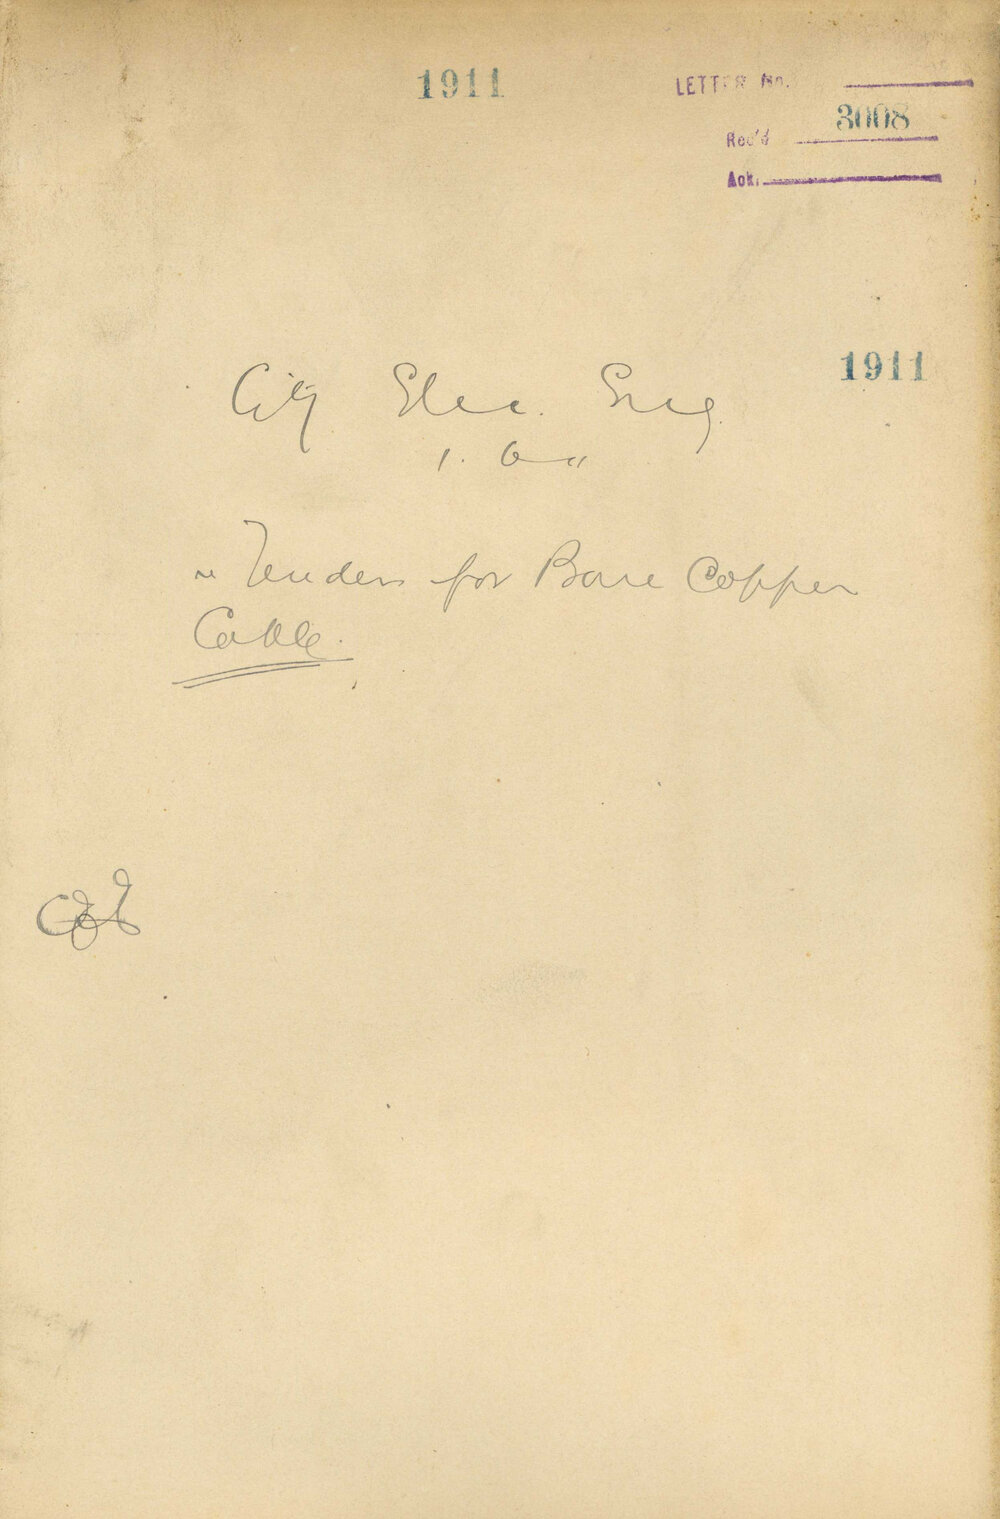 1911
LETTER No.
3008
Rec'd
Ack.
1911
City Elec. Eng.
re Tenders for Bare Copper
Cable.